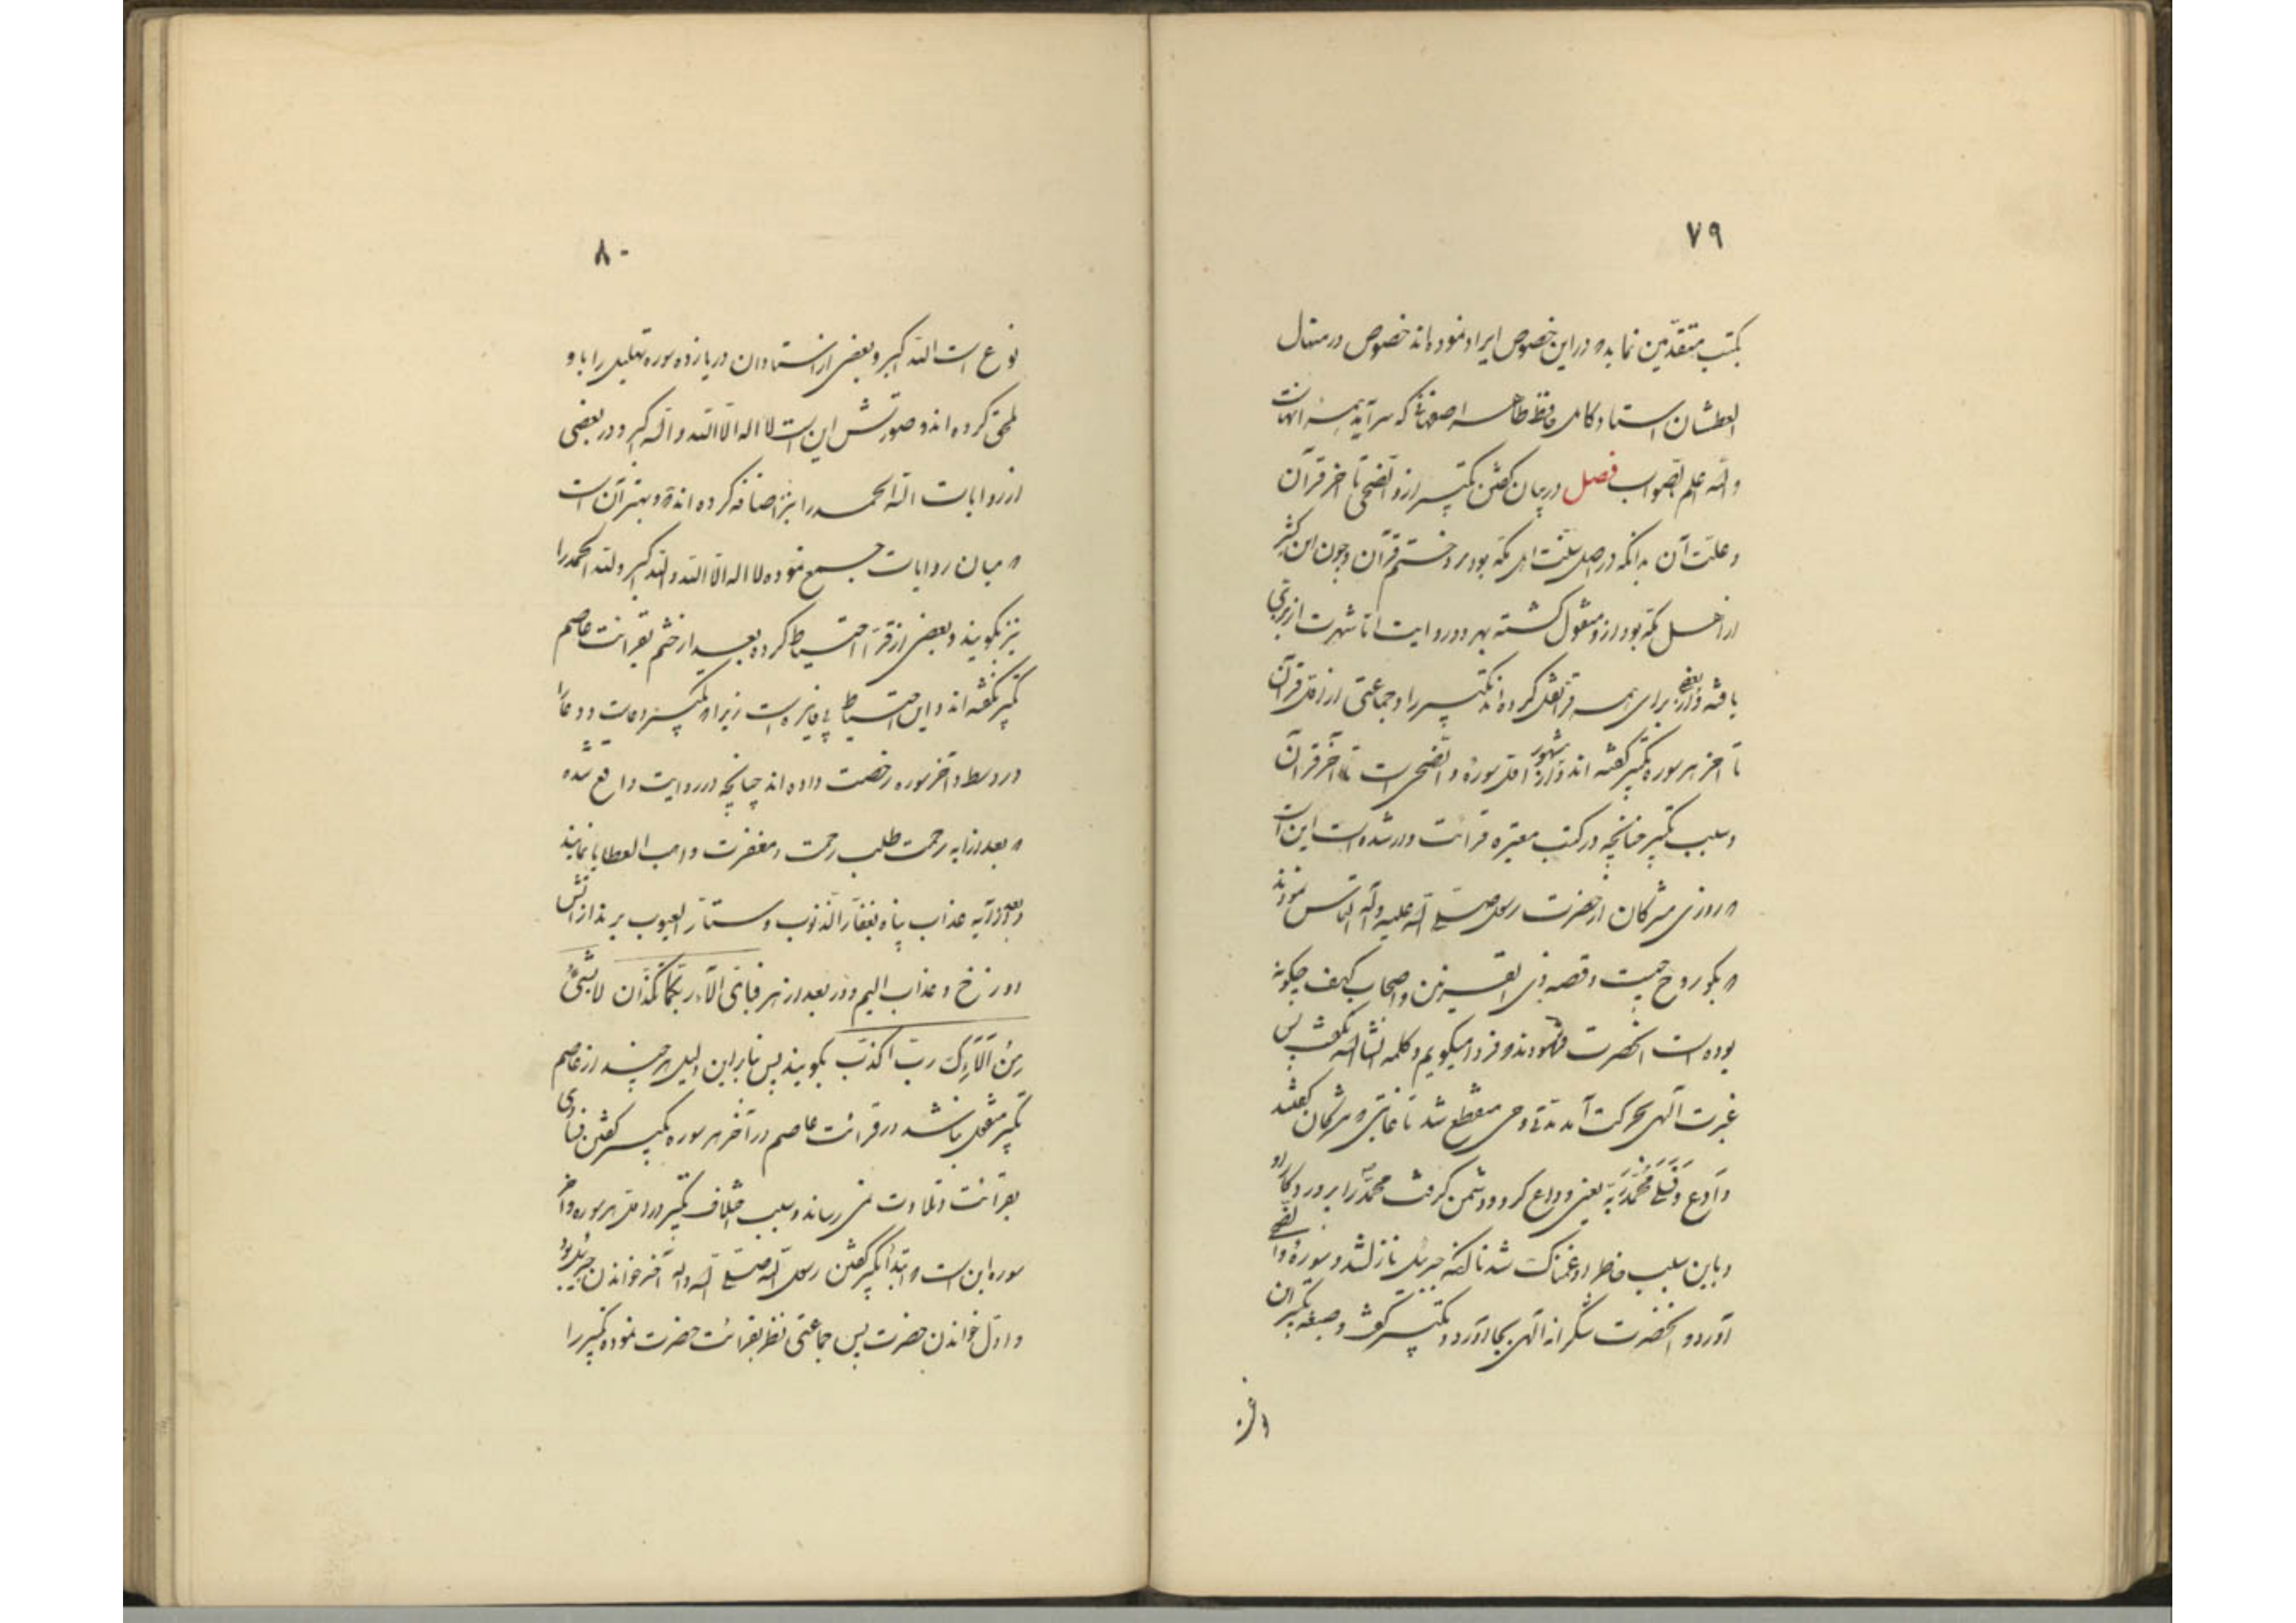 ۷۹
بکتب متقدّمین نماید که در این خصوص ایراد نموده‌اند خصوص در منهال
العطشان استاد کامل حافظ طاهر اصفهانی که سرآمد همه آنهاست
والله اعلم بالصواب فصل در بیان گفتن تکبیر از والضحی تا آخر قرآن
و علت آن بدانکه در اصل سنّت اهل مکه بود در ختم قرآن و چون ابن کثیر
از اهل مکه بود از او منقول گشته بهر دو روایت امّا شهرت از بزی
یافته و از بعضی برای همه قرّا نقل کرده‌اند تکبیر را و جماعتی از اول قرآن
تا آخر هر سوره تکبیر گفته‌اند و از مشهور اول سوره والضحی است تا آخر قرآن
و سبب تکبیر چنانچه در کتب معتبره قرائت وارد شده است این است
که روزی مشرکان از حضرت رسول صلی الله علیه و آله التماس نمودند
که بگو روح چیست و قصه ذی القرنین و اصحاب کهف چگونه
بوده است آنحضرت فرمودند که فردا میگویم و کلمه انشاالله نگفت پس
غیرت الهی بحرکت آمد مدتی وحی منقطع شد تا غایتی که مشرکان گفتند
وَدَّعَ وَقَلی مُحَمَّدً رَبّهُ یعنی وداع کرد و دشمن گرفت محمّد را پروردکار او
و باین سبب خاطر او غمناک شد ناگه جبرئیل نازل شد و سورۀ والضحی
آورد و آنحضرت شکرانه الهی بجا آورد و تکبیر گفت و صیغه تکبیر این
۸۰
نوع است الله اکبر و بعضی از استادان در یازده سوره تهلیل را با و
ملحق کرده‌اند و صورتش این است لا اله الا الله والله اکبر و در بعضی
از روایات لله الحمد را نیز اضافه کرده‌اند و بهتر آن است
که میان روایات جمع نموده لا اله الا الله والله اکبر ولله الحمد را
نیز بگویند و بعضی از قرّا احتیاط کرده بعد از ختم بقرائت عاصم
تکبیر نگفته‌اند و این احتیاط بی فایزه است زیرا که تکبیر دعاست و دعا را
در وسط و آخر سوره رخصت داده‌اند چنانچه در روایت واقع شده
که بعد از آیه رحمت طلب رحمت و مغفرت واهب العطایا نمایند
و بعد از آیه عذاب پناه بغفّار الذنوب و ستّار العیوب برند از آتش
دوزخ و عذاب الیم و در بعد از هر فبای آلاء ربکما تکذبان لا بشیئ
مِنْ آلائِکَ ربّ اکذب بگویند پس بنابراین دلیل هر چند از عاصم
تکبیر منقول نباشد در قرائت عاصم در آخر هر سوره تکبیر گفتن فسادی
بقرائت و تلاوت نمی رساند و سبب اختلاف تکبیر در اول هر سوره و آخر
سوره این است که ابتدا تکبیر گفتن رسول الله صلی الله و آله آخر خواندن جبرئیل بود
و اول خواندن حضرت پس جماعتی نظر بقرائت حضرت نموده تکبیر را